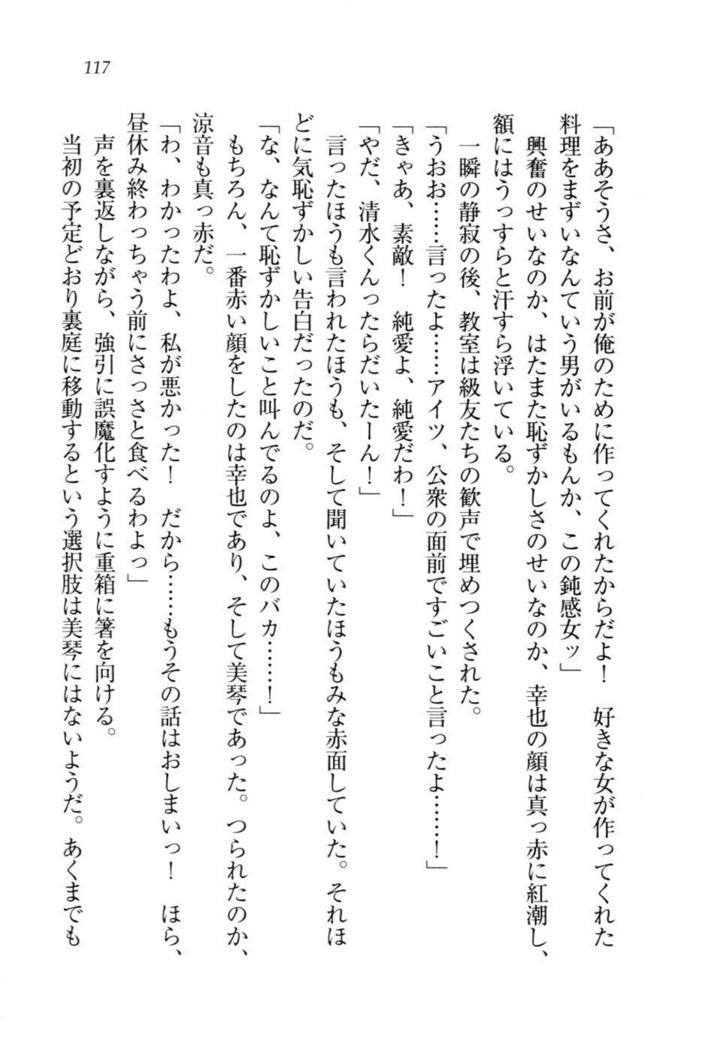 117
「ああそうさ、お前が俺のために作ってくれたからだよ！　好きな女が作ってくれた
料理をまずいなんていう男がいるもんか、この鈍感女ッ」
　興奮のせいなのか、はたまた恥ずかしさのせいなのか、幸也の顔は真っ赤に紅潮し、
額にはうっすらと汗すら浮いている。
　一瞬の静寂の後、教室は級友たちの歓声で埋めつくされた。
「うおお……言ったよ……アイツ、公衆の面前ですごいこと言ったよ……！」
「きゃあ、素敵！　純愛よ、純愛だわ！」
「やだ、清水くんったらだいたーん！」
　言ったほうも言われたほうも、そして聞いていたほうもみな赤面していた。それほ
どに気恥ずかしい告白だったのだ。
「な、なんて恥ずかしいこと叫んでるのよ、このバカ……！」
　もちろん、一番赤い顔をしたのは幸也であり、そして美琴であった。つられたのか、
涼音も真っ赤だ。
「わ、わかったわよ、私が悪かった！　だから……もうその話はおしまいっ！　ほら、
昼休み終わっちゃう前にさっさと食べるわよっ」
　声を裏返しながら、強引に誤魔化すように重箱に箸を向ける。
　当初の予定どおり裏庭に移動するという選択肢は美琴にはないようだ。あくまでも